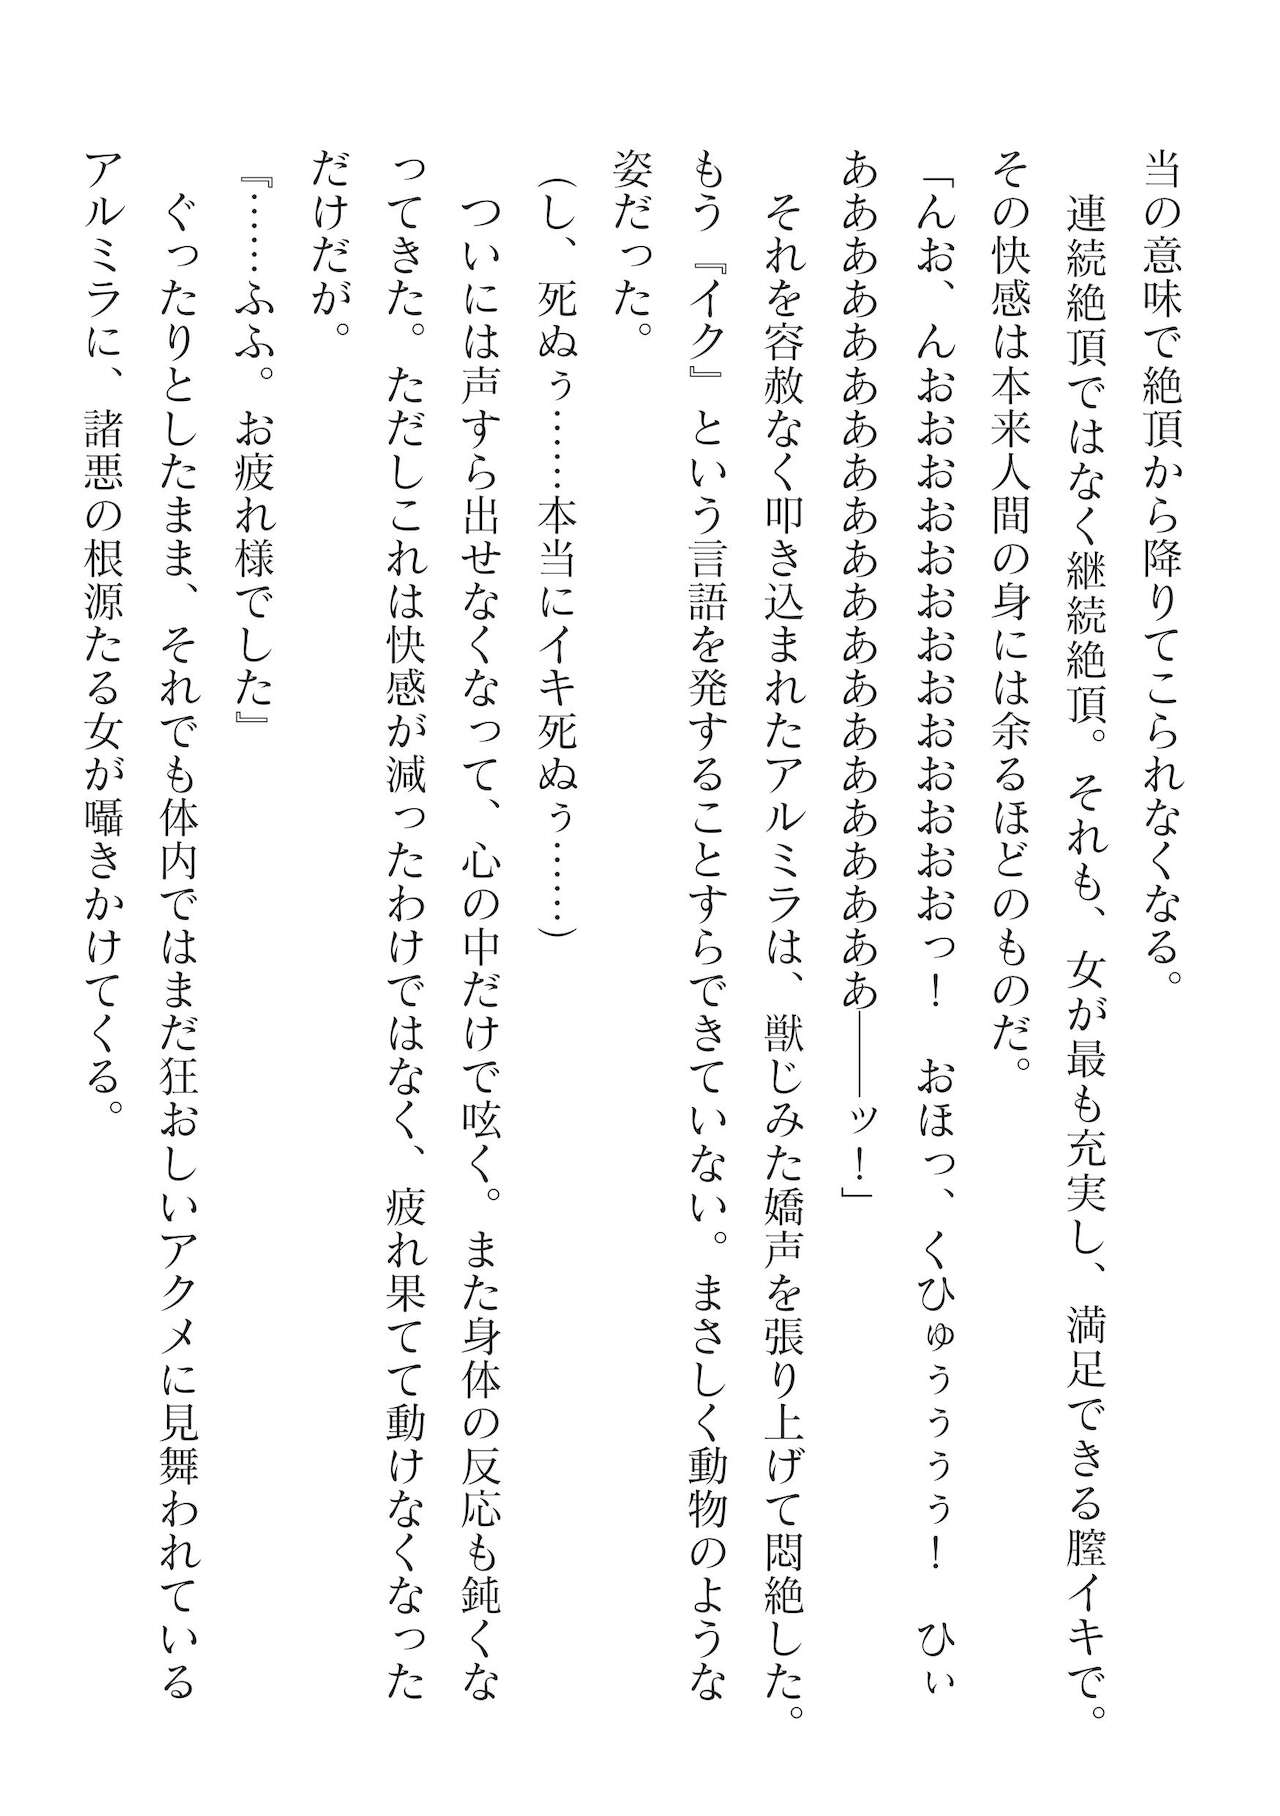 当の意味で絶頂から降りてこられなくなる。
　連続絶頂ではなく継続絶頂。それも、女が最も充実し、満足できる膣イキで。
その快感は本来人間の身には余るほどのものだ。
「んお、んおおおおおおおおおおおおおっ！　おほっ、くひゅぅぅぅぅ！　ひぃ
あああああああああああああああああああ――ッ！」
　それを容赦なく叩き込まれたアルミラは、獣じみた嬌声を張り上げて悶絶した。
もう『イク』という言語を発することすらできていない。まさしく動物のような
姿だった。
（し、死ぬぅ……本当にイキ死ぬぅ……）
　ついには声すら出せなくなって、心の中だけで呟く。また身体の反応も鈍くな
ってきた。ただしこれは快感が減ったわけではなく、疲れ果てて動けなくなった
だけだが。
『……ふふ。お疲れ様でした』
　ぐったりとしたまま、それでも体内ではまだ狂おしいアクメに見舞われている
アルミラに、諸悪の根源たる女が囁きかけてくる。